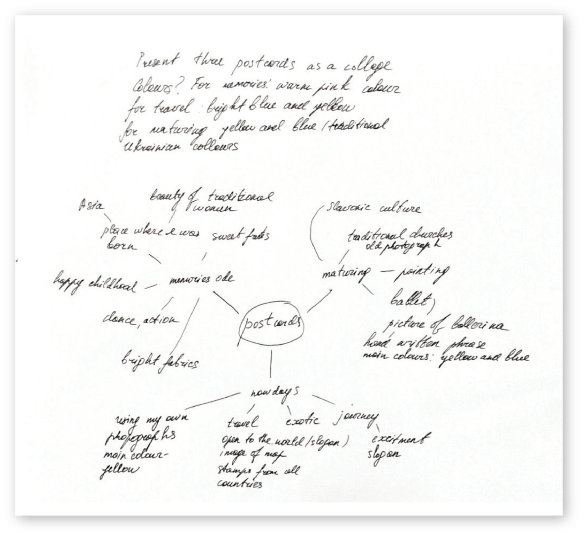 Present three postcards as a collage
Colours? For memories: warm pink colour
for travel: bright blue and yellow
for maturing yellow and blue / traditional
Ukrainian collours
Asia
beauty of traditional
women
place where I was
born
sweet
happy childhood
memories
dance, action
bright fabrics
postcards
slavonic culture
traditional churches
old photograph
maturing — painting
ballet)
picture of ballerina
hand wrytten phrase
main colours: yellow and blue
nowdays
using my own
phopographs
main colour-
yellow
travel
open to the world / slogan)
image of map
stamps from all
countries
exotic
journey
exciment
slogan